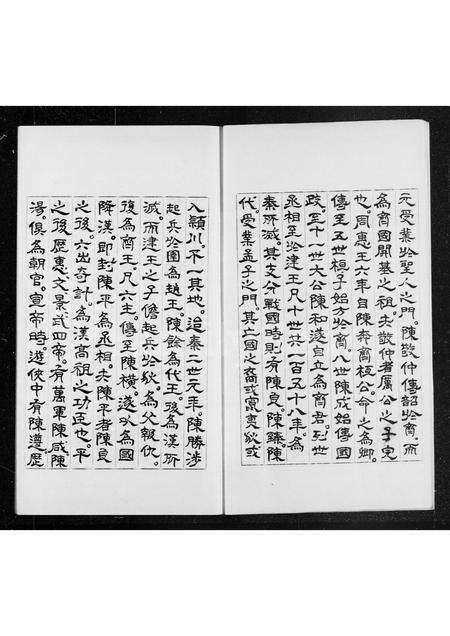 元受業於聖人之門。陳敬仲傳韶於齊。而
為齊國開基之祖。夫敬仲者厲公之子完
也。周惠王六年自陳奔齊。桓公命之為卿。
傳至五世桓子始大於齊。八世陳成始傳國
政。至十一世大公陳和遂自立為齊君。列世
丞相至於建王。凡十世共一百五十八年。為
秦所滅。其支分戰國時則有陳良。陳臻。陳
代。受業孟子之門。其亡國之裔或寓夷狄或
入潁川。不一其地。迨秦二世元年。陳勝涉
起兵於圉為趙王。陳餘為代王。後為漢所
滅。而建王之子儋起兵於狄。為父報仇。
後為齊王。凡六主傳至陳橫。遂以為國
降漢。即封陳平為丞相。夫陳平者陳良
之後。六出奇計。為漢高祖之功臣也。平
之後歷惠文景武四帝。有萬軍陳咸陳
湯俱為朝官。宣帝時。遊俠中有陳遵。歷